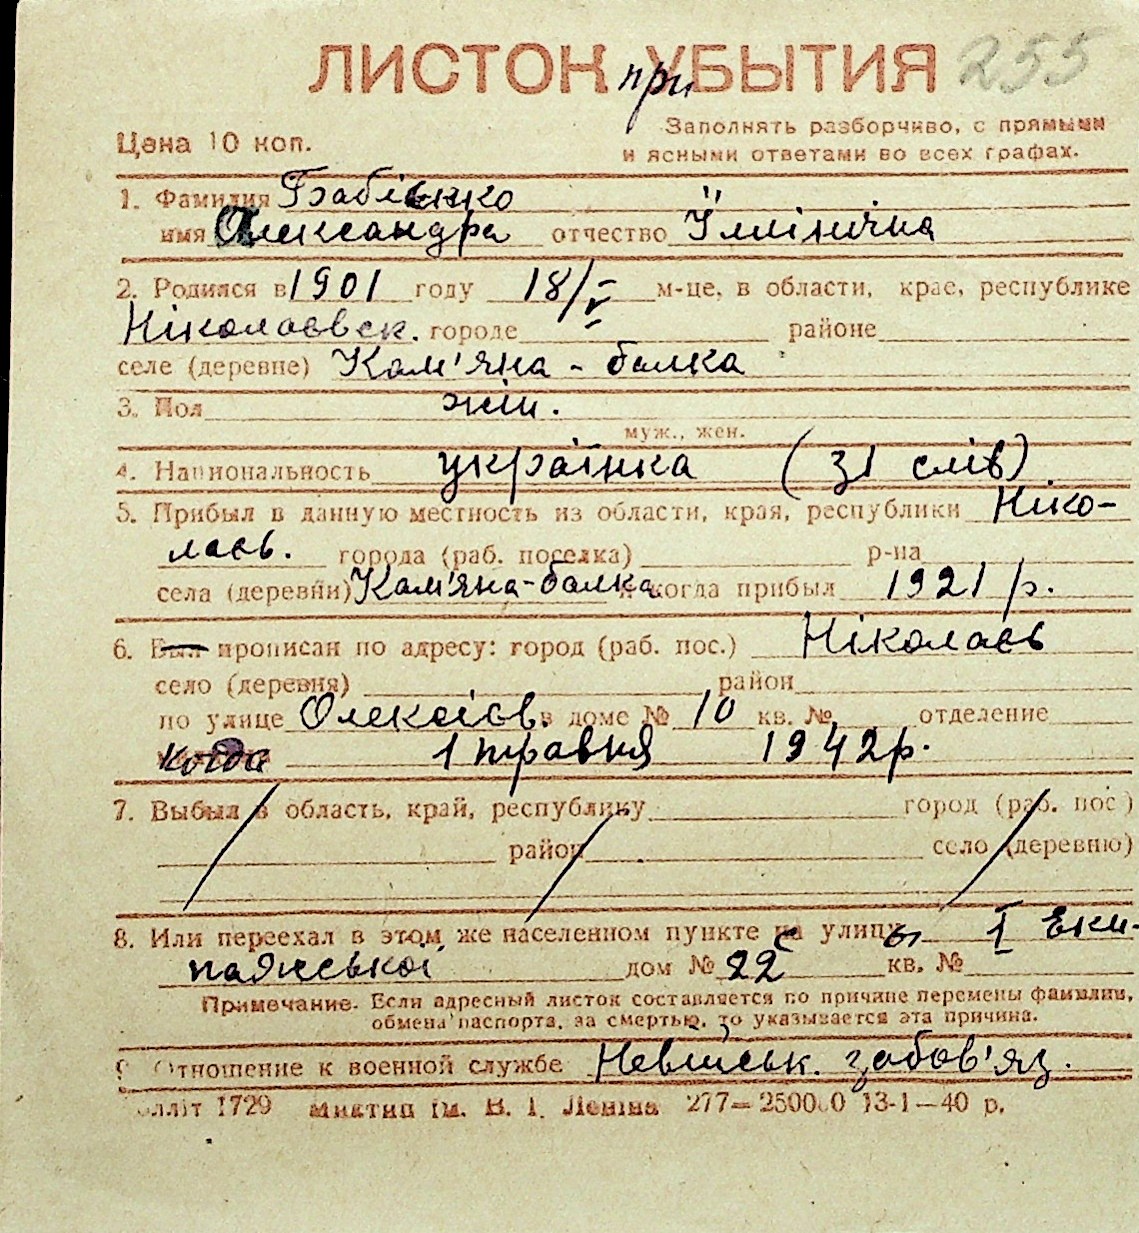 ЛИСТОК при УБЫТИЯ 255
Цена 10 коп.
Заполнять разборчиво, с прямыми
и ясными ответами во всех графах.
1. Фамилия Бабієнко
имя Олександра отчество Іллінічна
2. Родился в 1901 году 18/V м-це, в области, крае, республике
Ніколаєвск. городе районе
селе (деревне) Кам'яна-балка
3. Пол жін.
муж., жен.
4. Национальность українка (зі слів)
5. Прибыл в данную местность из области, края, республики Ніко-
лаєв. города (раб. поселка) р-на
села (деревни) Кам'яна-балка и когда прибыл 1921 р.
6. Был прописан по адресу: город (раб. пос.) Ніколаєв
село (деревня) район
по улице Олексієв. в доме № 10 кв. № отделение
когда 1 травня 1942 р.
7. Выбыл в область, край, республику город (раб. пос)
район село (деревню)
8. Или переехал в этом же населенном пункте с улицы I Еки-
пажської дом № 22 кв. №
Примечание. Если адресный листок составляется по причине перемены фамилии,
обмена паспорта, за смертью, то указывается эта причина.
9. Отношение к военной службе Невійськ. забов'яз.
лліт 1729 ім. В. І. Леніна 277—250000 13-1—40 р.